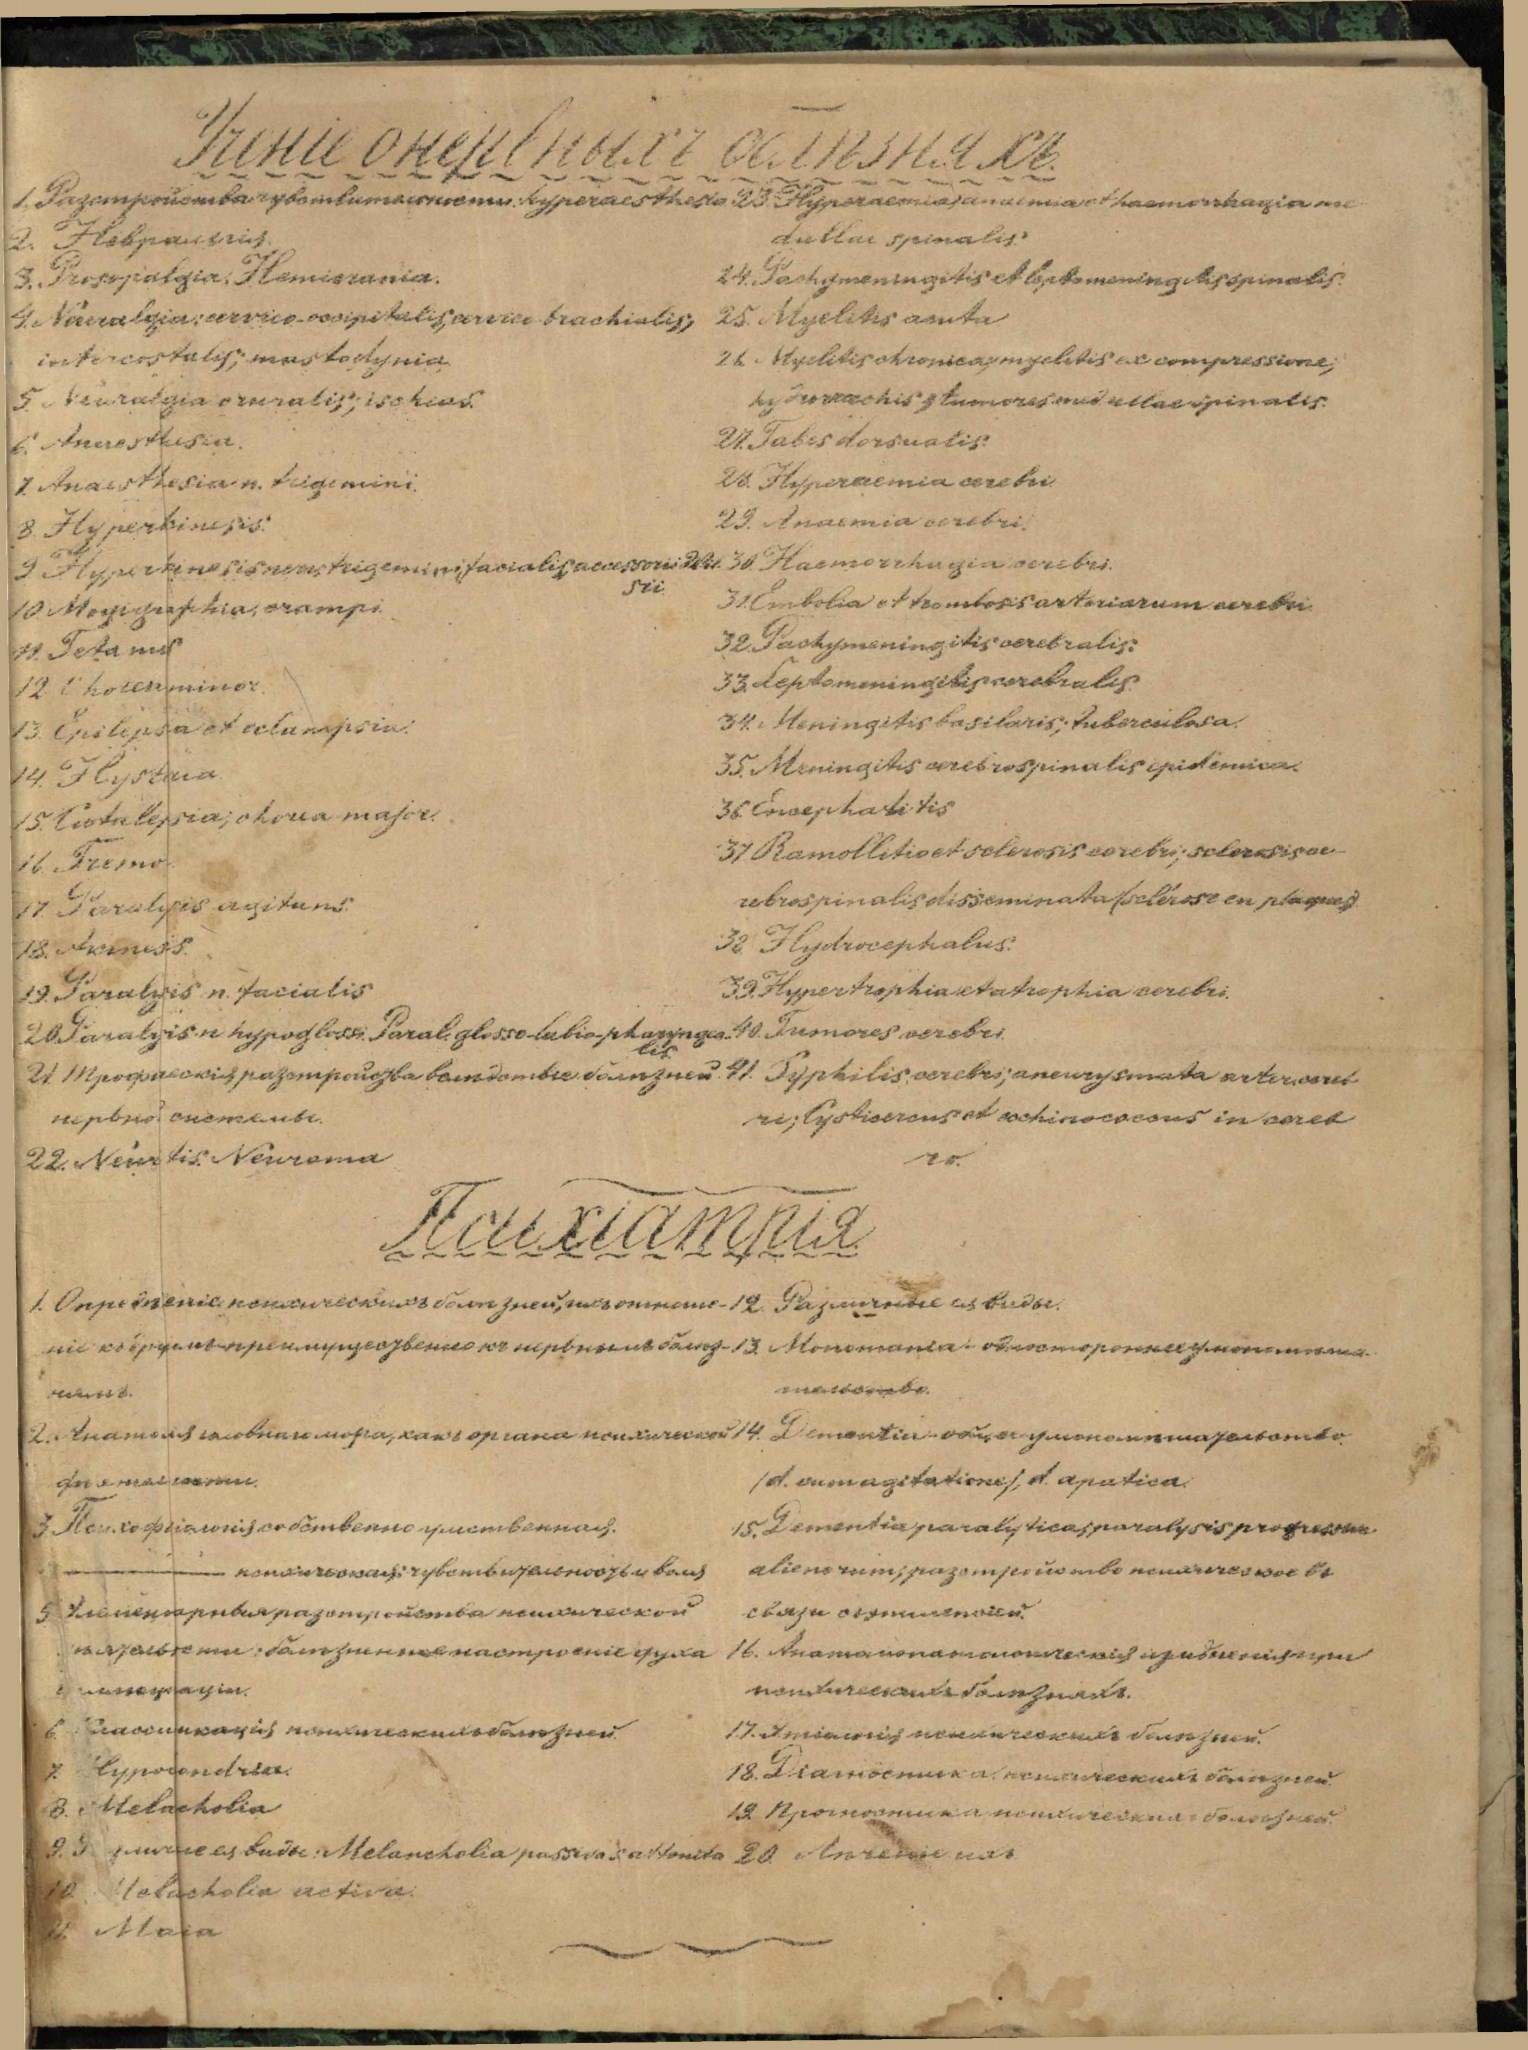 Ученіе о нервныхъ болѣзняхъ.
1. Разстройства чувствительности: hyperaesthesia
2. Невралгія.
3. Prosopalgia; Hemicrania.
4. Neuralgia: cervico-occipitalis, cervico-brachialis,
intercostalis; mastodynia
5. Neuralgia cruralis; ischias.
6. Anaesthesia.
7. Anaesthesia n. trigemini.
8. Hyperkinesis.
9. Hyperkinesis nerv. trigemini, facialis, accessorii
10. Mogigraphia, crampi.
11. Tetanus
12. Chorea minor.
13. Epilepsia et eclampsia.
14. Hysteria
15. Catalepsia; chorea major.
16. Tremo
17. Paralysis agitans.
18. Akinesis.
19. Paralysis n. facialis
20. Paralysis n. hypoglossi. Paral. glosso-labio-pharyngea-
lis
21. Трофическія разстройства вслѣдствіе болѣзней
нервной системы.
22. Neuritis. Neuroma
23. Hyperaemia, anaemia et haemorrhagia me-
dullae spinalis.
24. Pachymeningitis et leptomeningitis spinalis.
25. Myelitis acuta
26. Myelitis chronica; myelitis ex compressione;
hydrorrachis; tumores medullae spinalis.
27. Tabes dorsualis.
28. Hyperaemia cerebri
29. Anaemia cerebri.
30. Haemorrhagia cerebri.
31. Embolia et trombosis arteriarum cerebri
32. Pachymeningitis cerebralis.
33. Leptomeningitis cerebralis
34. Meningitis basilaris; tuberculosa.
35. Meningitis cerebrospinalis epidemica.
36. Encephalitis
37. Ramollitio et sclerosis cerebri; sclerosis ce-
rebrospinalis disseminata (sclérose en plaques)
38. Hydrocephalus.
39. Hypertrophia et atrophia cerebri.
40. Tumores cerebri
41. Syphilis cerebri; aneurysmata arter. cereb
ri; Cysticercus et echinococcus in cereb
ro.
Психіатрія.
1. Опредѣленіе психическихъ болѣзней, ихъ отноше-
ніе къ другимъ преимущественно къ нервнымъ болѣз-
нямъ.
2. Анатомія головнаго мозга, какъ органа психической
дѣятельности.
3. Психофизіологія собственно умственная.
психическая: чувствительность и воля
5. Элементарныя разстройства психической
дѣятельности: болѣзненное настроеніе духа
6. Классификація психическихъ болѣзней
7. Hypocondria.
8. Melacholia
9. Различные ея виды: Melancholia passiva s. attonita
10. Melacholia activa.
11. Maia
12. Различные ея виды.
13. Monomania - одностороннее умопомѣша-
тельство.
14. Dementia - общее умопомѣшательство
(d. cum agitatione), d. apatica.
15. Dementia paralytica, paralysis progressiva
alienorum; разстройство психическое въ
связи съ эпилепсіей.
16. Анатомопатологическія измѣненія при
психическихъ болѣзняхъ.
17. Этіологія психическихъ болѣзней.
18. Діагностика психическихъ болѣзней
19. Прогностика психическихъ болѣзней.
20. Лѣченіе ихъ